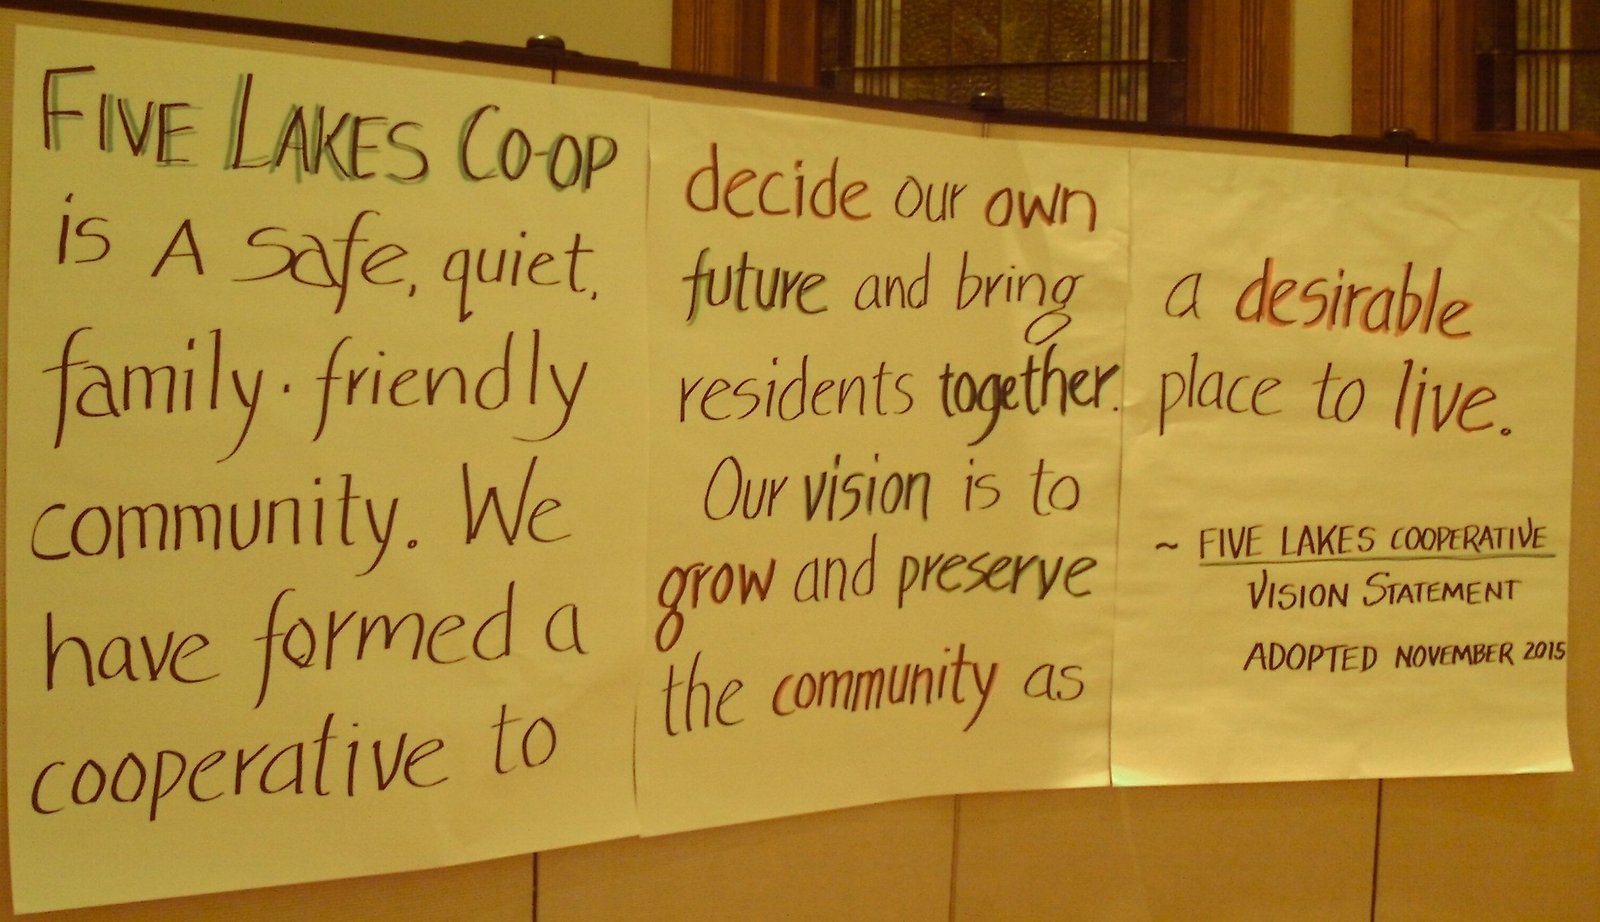 FIVE LAKES CO-OP
is A safe, quiet,
family-friendly
community. We
have formed a
cooperative to
decide our own
future and bring
residents together.
Our vision is to
grow and preserve
the community as
a desirable
place to live.
~ FIVE LAKES COOPERATIVE
VISION STATEMENT
ADOPTED NOVEMBER 2015